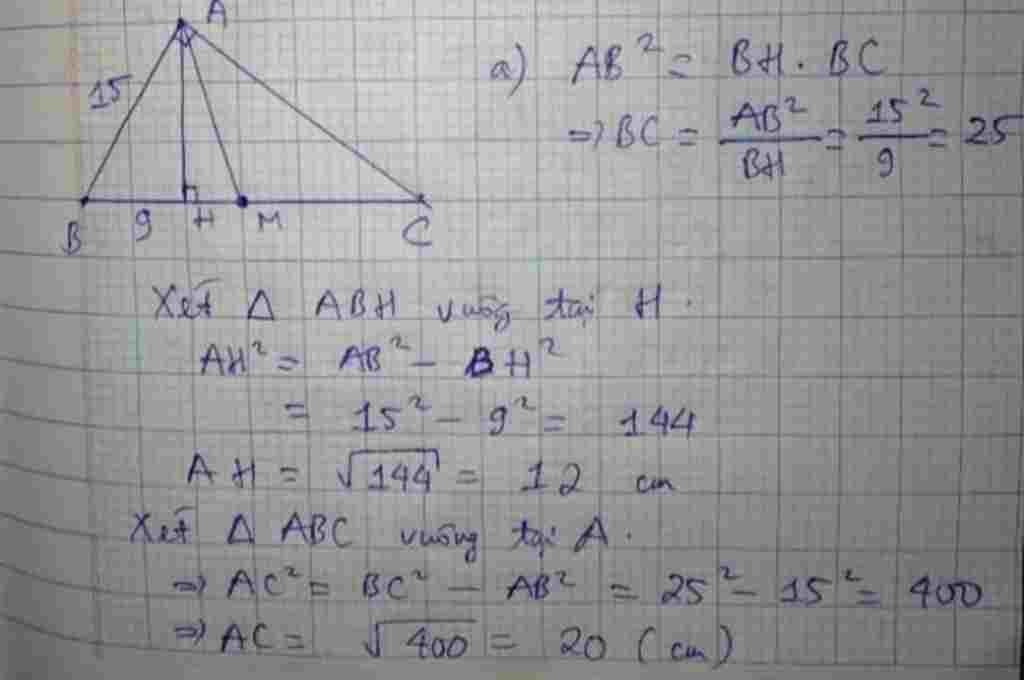 A
15
B 9 H M C
a) AB² = BH . BC
=> BC = AB²/BH = 15²/9 = 25
Xét Δ ABH vuông tại H .
AH² = AB² - BH²
= 15² - 9² = 144
AH = √144 = 12 cm
Xét Δ ABC vuông tại A .
=> AC² = BC² - AB² = 25² - 15² = 400
=> AC = √400 = 20 (cm)